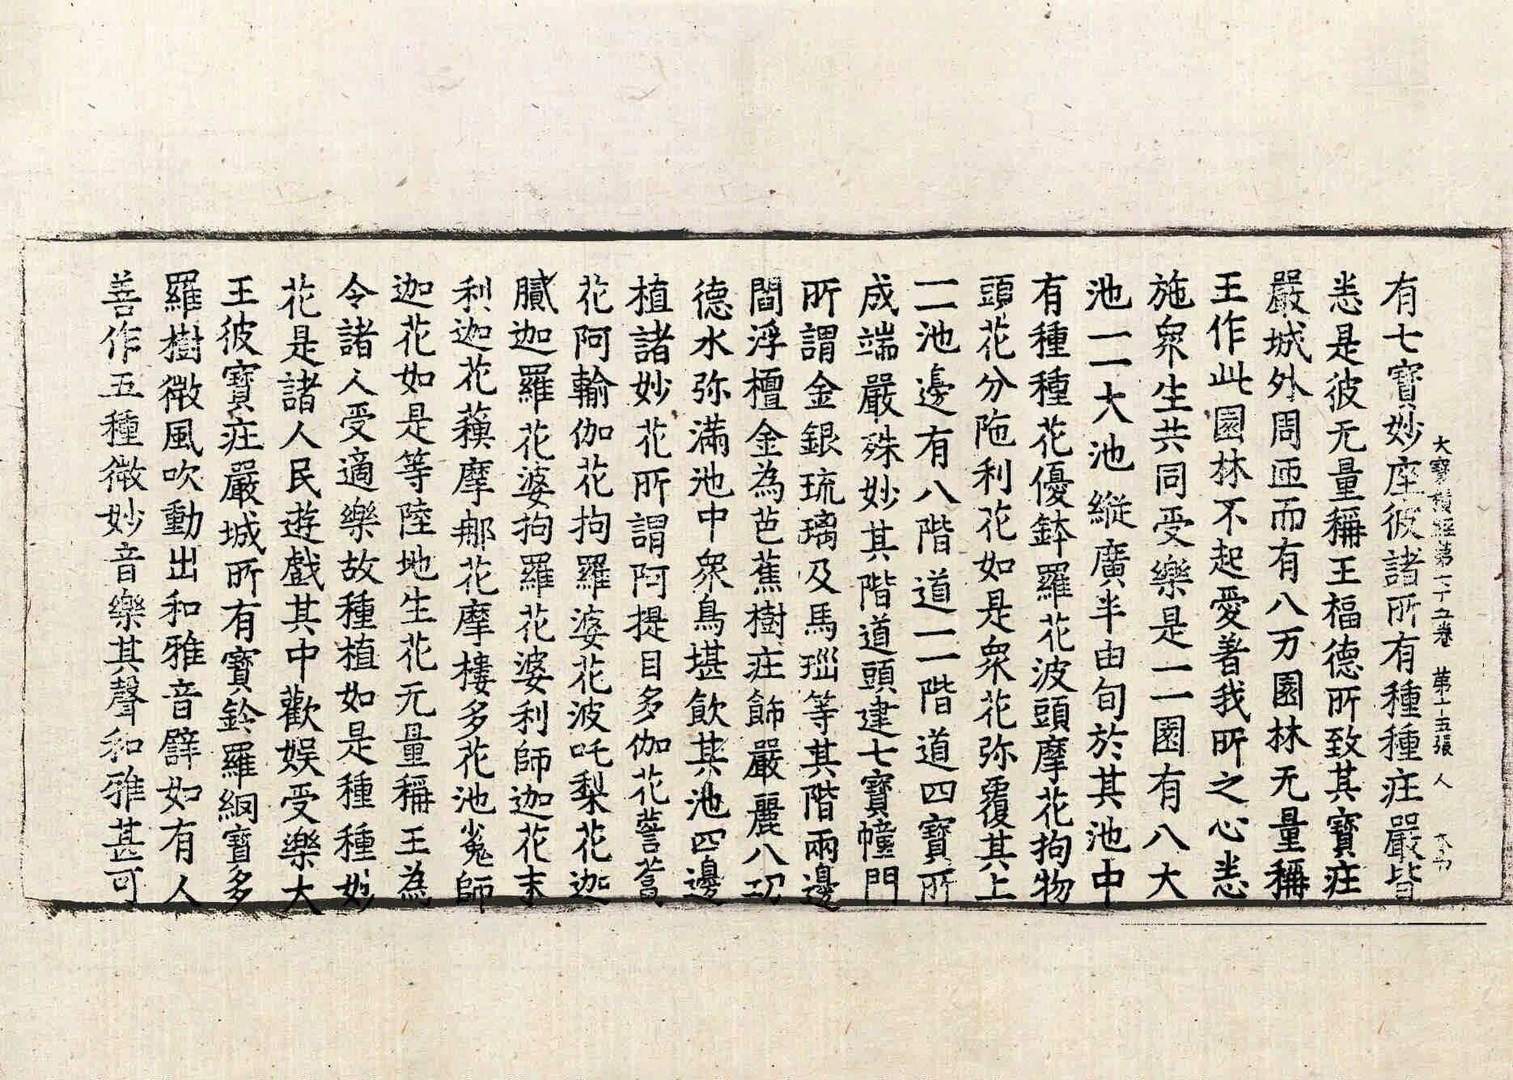 大寶積經第七十五卷 第十五張 人
有七寶妙座彼諸所有種種庄嚴皆
悉是彼无量稱王福德所致其寶庄
嚴城外周迊而有八万園林无量稱
王作此園林不起愛著我所之心悉
施衆生共同受樂是一一園有八大
池一一大池縱廣半由旬於其池中
有種種花優鉢羅花波頭摩花拘物
頭花分陁利花如是衆花弥覆其上
一一池邊有八階道一一階道四寶所
成端嚴殊妙其階道頭建七寶幢門
所謂金銀琉璃及馬瑙等其階兩邊
閻浮檀金為芭蕉樹庄飾嚴麗八功
德水弥滿池中衆鳥堪飲其池四邊
植諸妙花所謂阿提目多伽花薝蔔
花阿輸伽花拘羅婆花波吒梨花迦
膩迦羅花婆拘羅花婆利師迦花末
利迦花蘋摩那花摩樓多花池嵬師
迦花如是等陸地生花无量稱王為
令諸人受適樂故種植如是種種妙
花是諸人民遊戲其中歡娛受樂大
王彼寶庄嚴城所有寶鈴羅網寶多
羅樹微風吹動出和雅音譬如有人
善作五種微妙音樂其聲和雅甚可